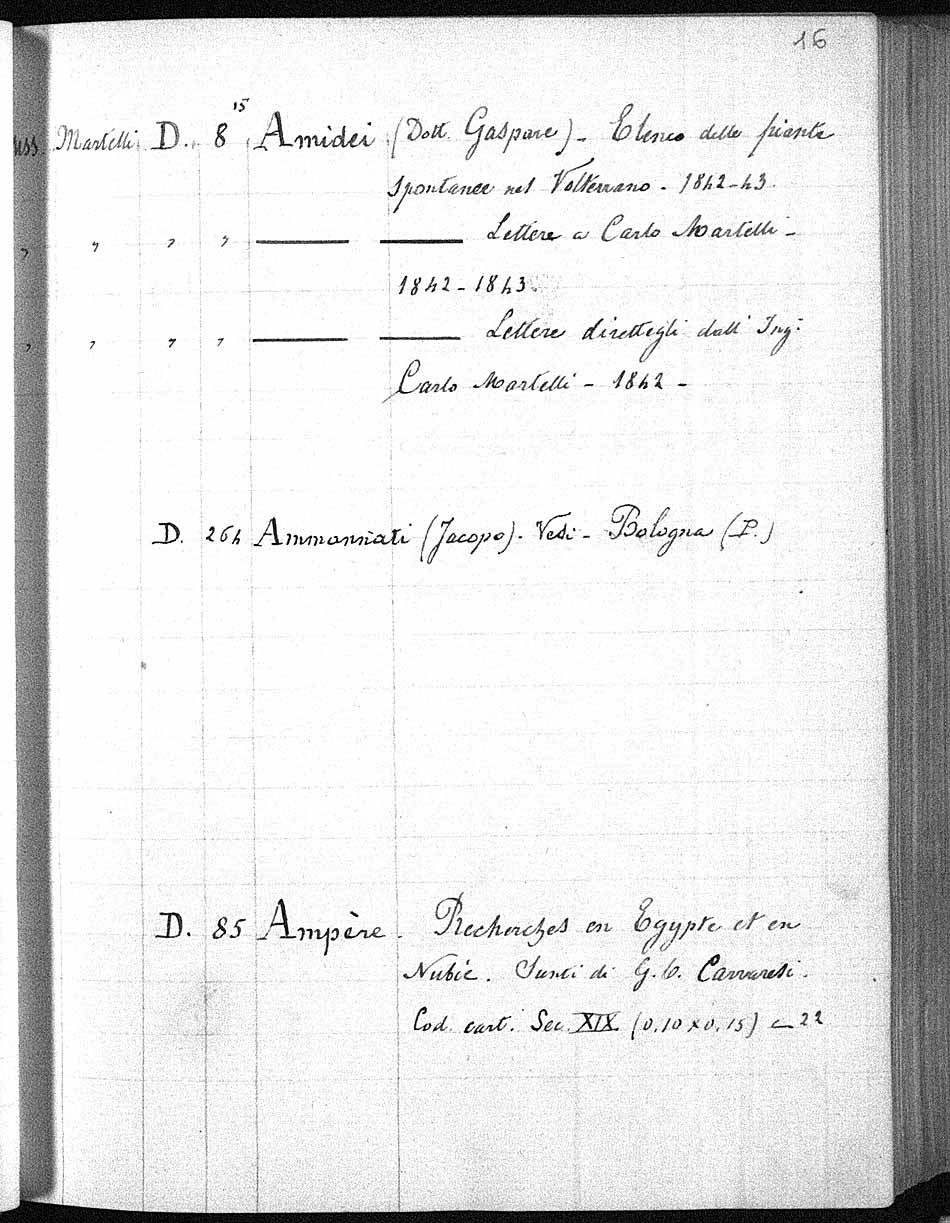 16
Mss Martelli D. 8 15 Amidei (Dott. Gaspare) - Elenco delle piante
spontanee nel Volterrano - 1842-43.
" " " " —— —— Lettere a Carlo Martelli -
1842 - 1843.
" " " " —— —— Lettere direttegli dall' Ing:
Carlo Martelli - 1842 -
D. 264 Ammannati (Jacopo). Vedi - Bologna (P.)
D. 85 Ampère - Recherches en Egypte et en
Nubie. Sunti di G. C. Carraresi.
Cod. cart. Sec. XIX (0,10 x 0,15) c 22